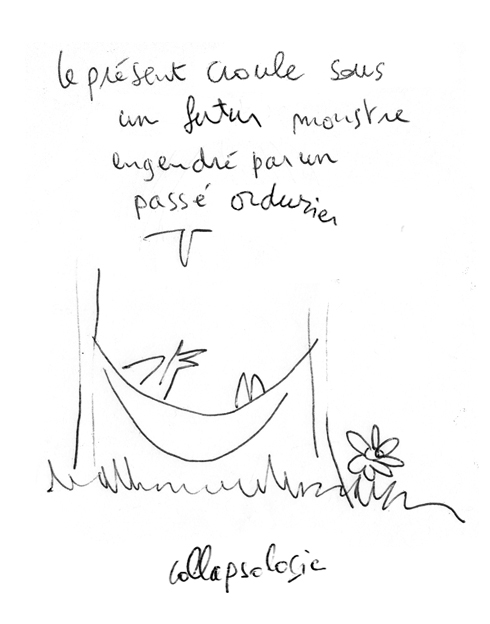 le présent croule sous
un futur monstre
engendré par un
passé ordurier
collapsologie